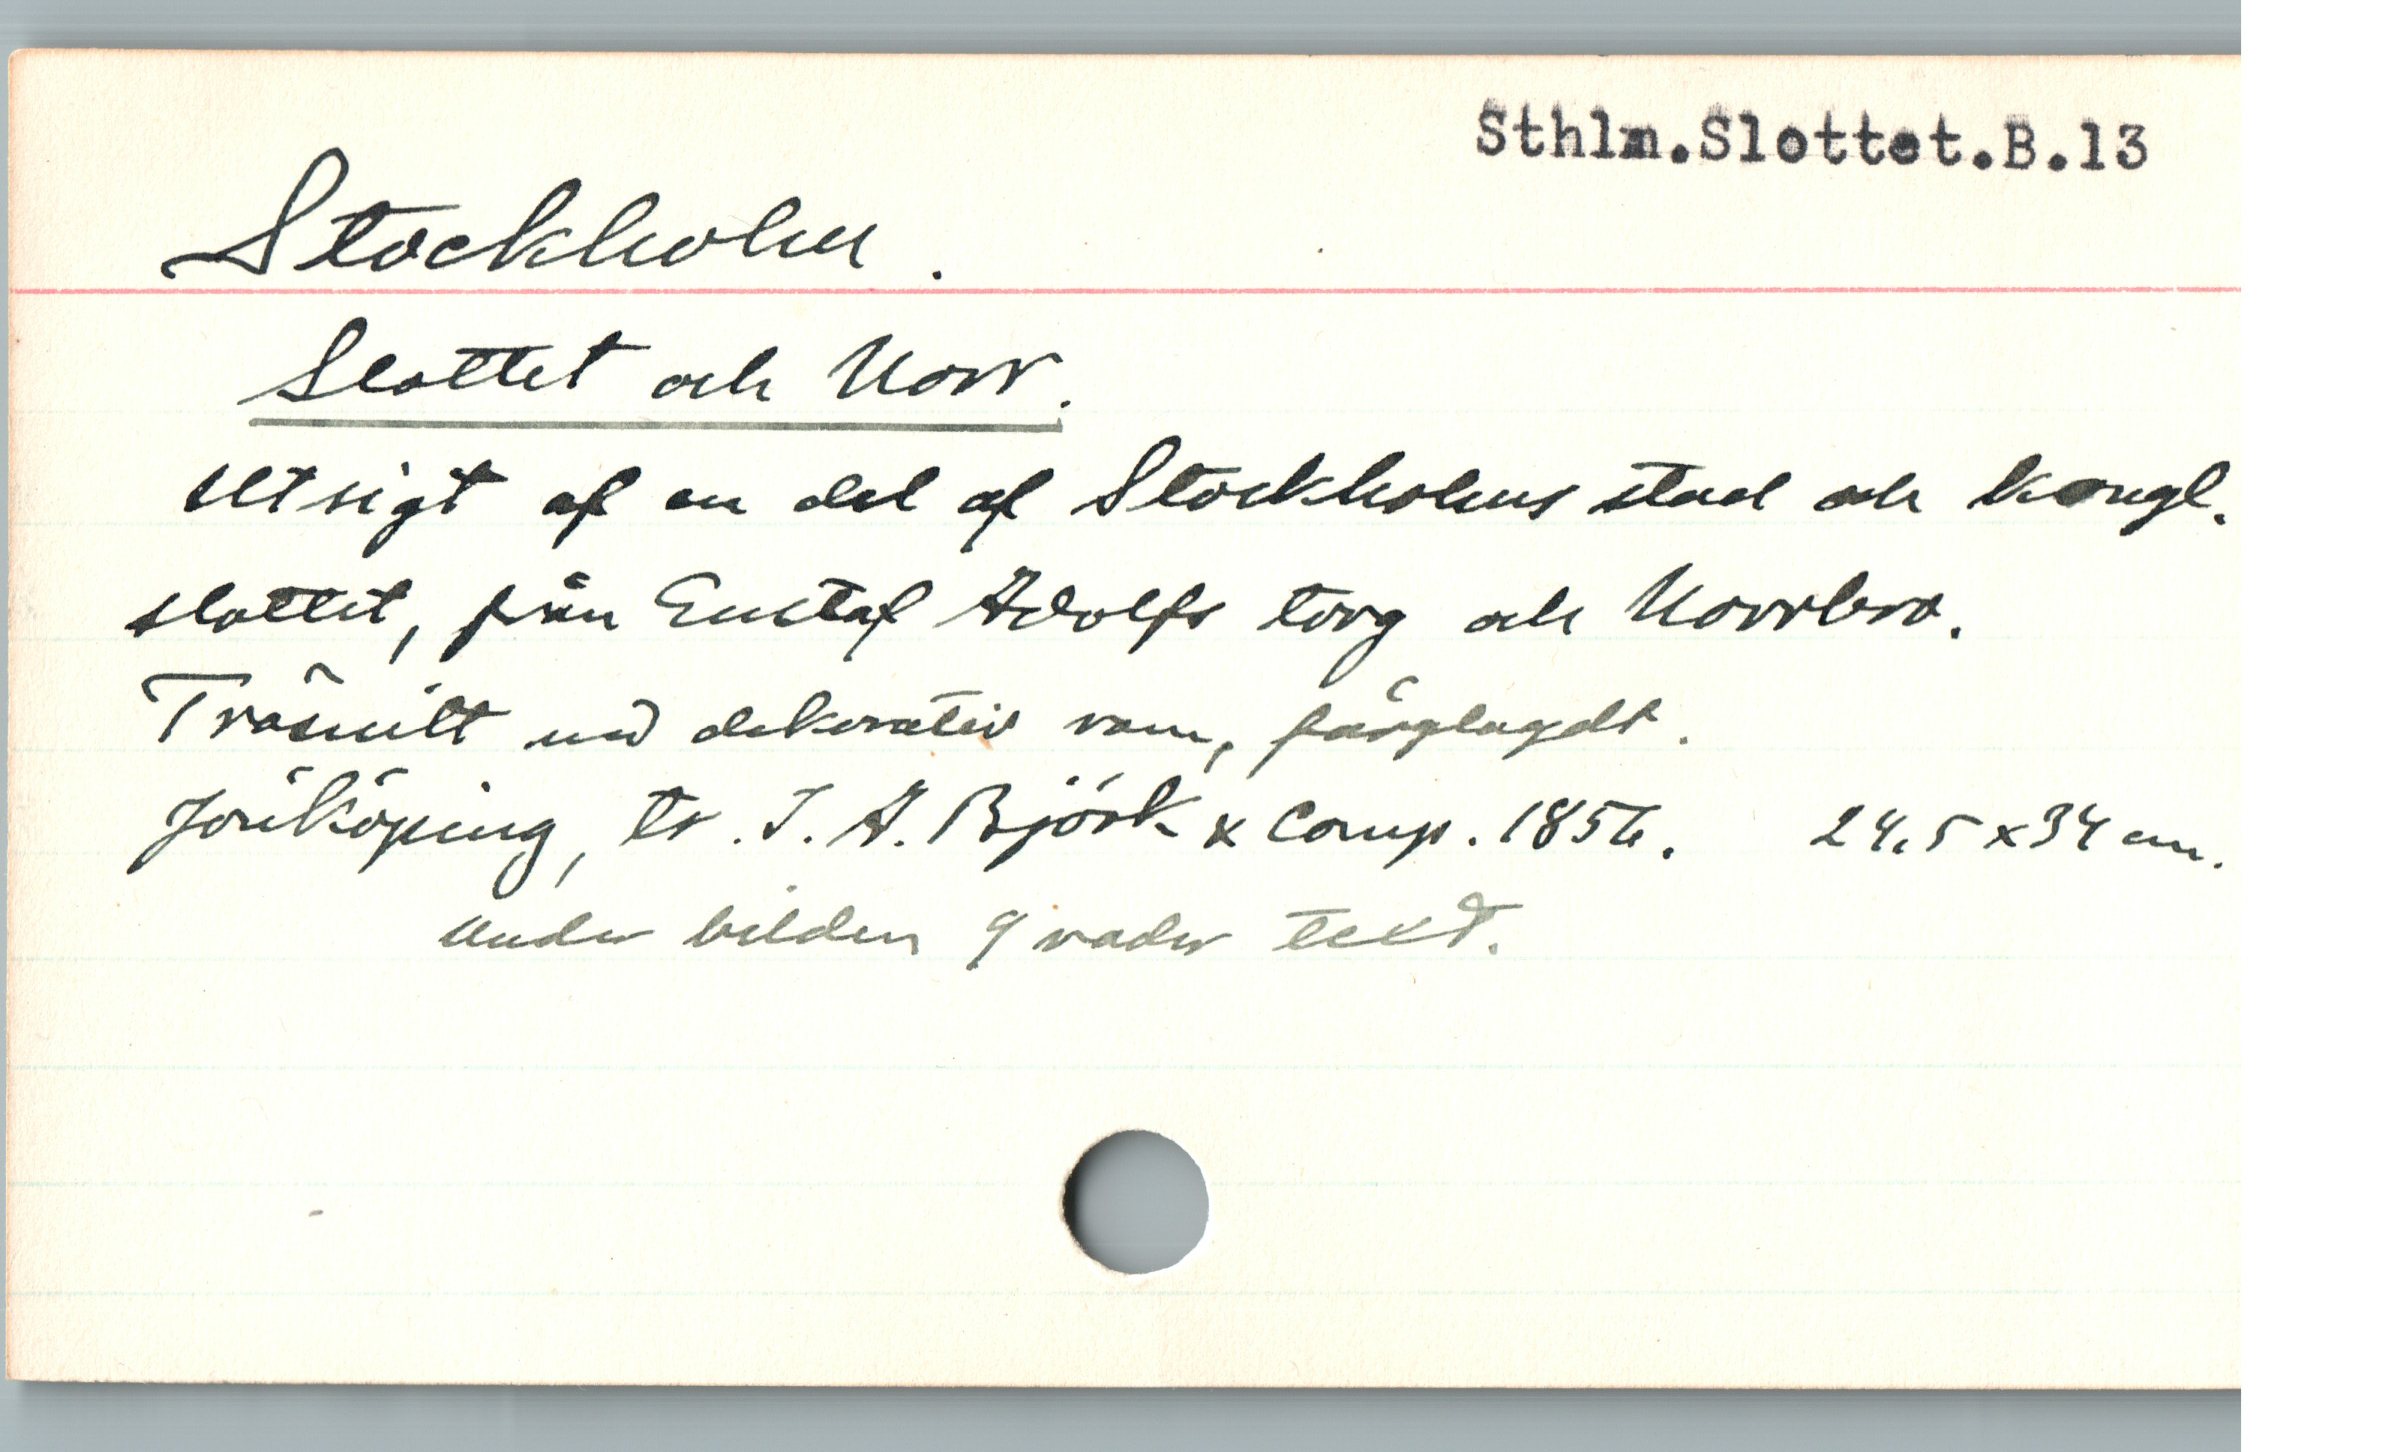 Sthlm.Slottet.B.13
Stockholm.
Slottet och Norr.
Utsigt af en del af Stockholms stad och kongl.
slottet, från Gustaf Adolfs torg och Norrbro.
Träsnitt med dekorativ ram, färglagdt.
Jönköping, tr. J. A. Björk & Comp. 1856. 24,5 x 34 cm.
Under bilden 9 rader text.